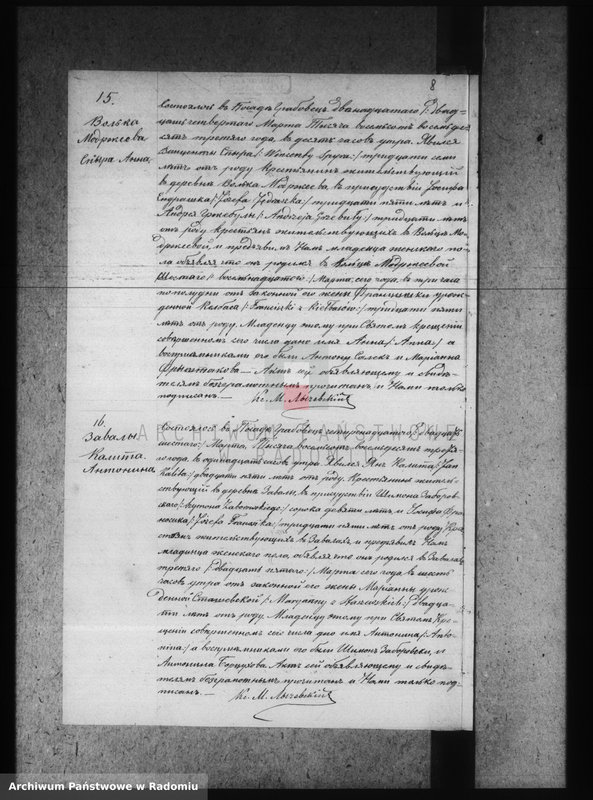 8
15.
Волька
Модржеева
Спыра Анна
Состоялось въ Посадѣ Грабовецъ Двѣнадцатаго /: Двад-
цать четвертаго Марта Тысяча восемьсотъ восемьде-
сятъ третяго года, въ десять часовъ утра. Явился
Винценты Спыра /: Wincenty Spyra :/ тридцати семи
лѣтъ отъ роду крестьянинъ жительствующій
въ деревнѣ Волька Модржеева, въ присутствіи Іосифа
/: Józefa :/ тридцати пяти лѣтъ и
Андрея /: Andrzeja :/ тридцати лѣтъ
отъ роду, крестьянъ жительствующихъ въ Вольцѣ Мо-
држеевой и предъявилъ Намъ младенца женскаго по-
ла объявляя что онъ родился въ Вольцѣ Модржеевой
шестаго /: восемнадцатаго :/ Марта сего года, въ три часа
по полудни отъ законной его жены Францишки урож-
денной Келбаса /: Franciszki z Kiełbasów :/ тридцати пяти
лѣтъ отъ роду. Младенцу этому при Святомъ крещеніи
совершенномъ сего числа дано имя Анна /: Anna :/ а
воспріемниками его были Антоны и Маріанна
Актъ сей объявляющему и свидѣ-
телямъ безграмотнымъ прочитанъ и Нами только
подписанъ. — Кс. М. Лычевскій
16.
Завалы
Калита
Антонина
Состоялось въ Посадѣ Грабовецъ Четырнадцатаго /: Двадцать
шестаго :/ Марта, Тысяча восемьсотъ восемьдесятъ третья-
го года, въ одинадцать часовъ утра. Явился Янъ Калита /: Jan
Kalita :/ двадцати пяти лѣтъ отъ роду, крестьянинъ житель-
ствующій въ деревнѣ Завалы, въ присутствіи Шимона Заборов-
скаго /: Szymona Zaborowskiego :/ сорока девяти лѣтъ и Іосифа Фра-
/: Józefa :/ тридцати лѣтъ отъ роду, кре-
стьянъ жительствующихъ въ Завалахъ и предъявилъ Намъ
младенца женскаго пола, объявляя что онъ родился въ Завалахъ
/: двадцать пятаго :/ Марта сего года въ шесть
часовъ утра отъ законной его жены Маріанны урож-
денной Сташевской /: Maryanny z :/ двадца-
ти лѣтъ отъ роду. Младенцу этому при Святомъ Кре-
щеніи совершенномъ сего числа дано имя Антонина /: Anto-
nina :/ а воспріемниками его были Шимонъ Заборовскій и
Антонина Актъ сей объявляющему и свидѣ-
телямъ безграмотнымъ прочитанъ и Нами только под-
писанъ. — Кс. М. Лычевскій
Archiwum Państwowe w Radomiu